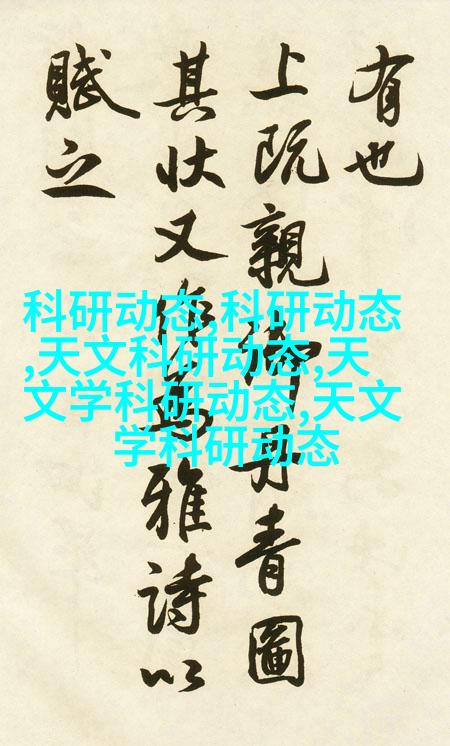 有也
上既親御丹青圖
其状又作為雅詩以
賦之
科研动态,科研动态
,天文科研动态,天
文学科研动态,天文
学科研动态